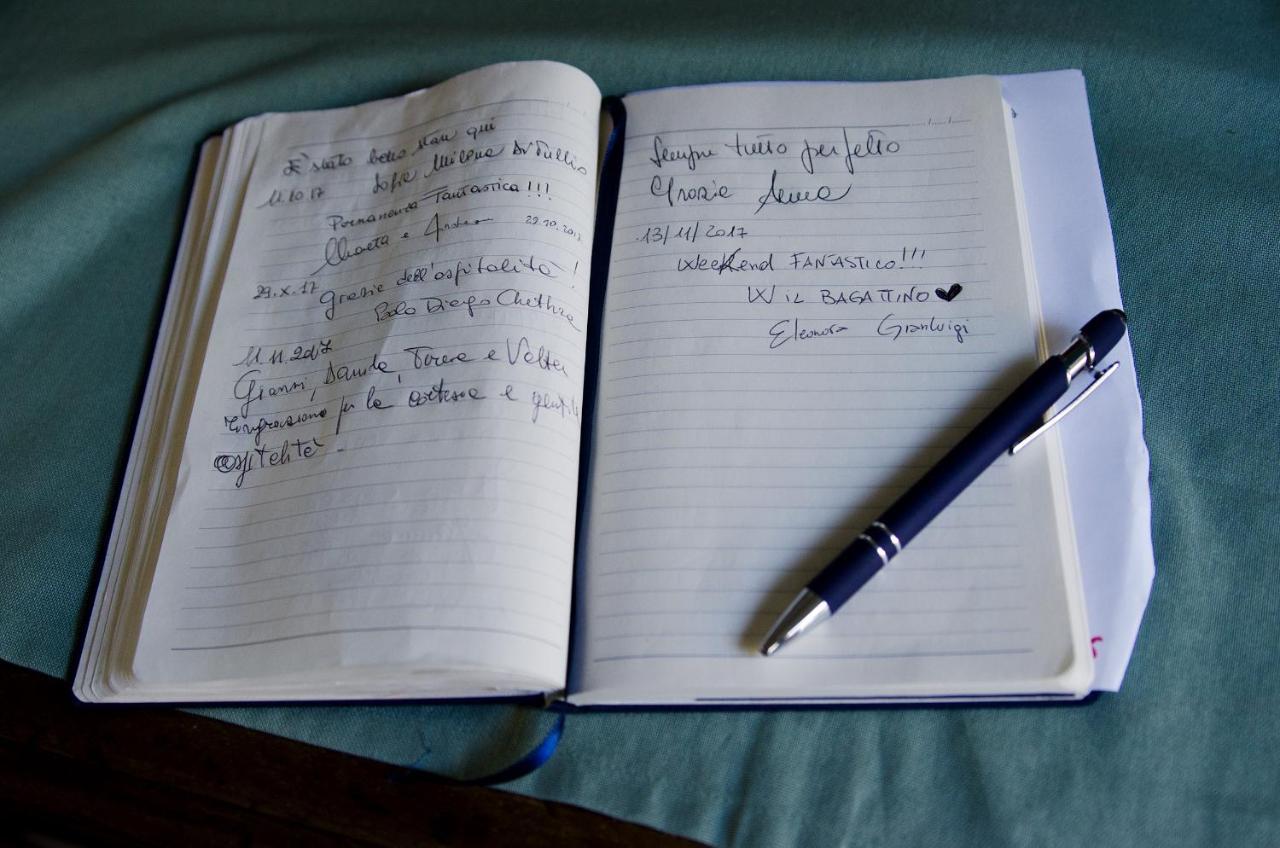 È stato bello stare qui
11.10.17 Sofia Milena Di Tullio
Permanenza Fantastica!!!
e Andrea 29.10.2017
29.X.17 grazie dell'ospitalità!
Paolo Diego
11.11.2017
Gianni, e Valter
ringraziano per la cortesia e gentile
ospitalità.
Sempre tutto perfetto
Grazie Anna
13/11/2017
Weekend FANTASTICO!!!
W IL BAGATTINO ♥
Eleonora Gianluigi